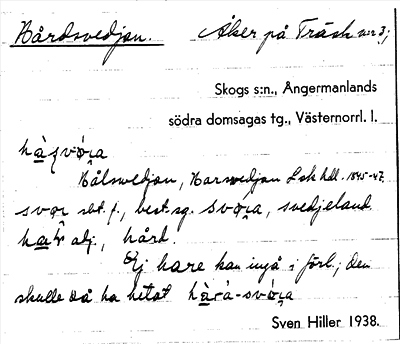 Hårdsvedjan. Åker på Träsk nr 3;
Skogs s:n., Ångermanlands
södra domsagas tg., Västernorrl. l.
Hålswedjan, Harswedjan Lsk hdl. 1845-47,
svor sbt. f., best. sg. svöra, svedjeland
adj., hård.
Ej hare kan ingå i förl.; den
skulle då ha hetat hàrà-svöra
Sven Hiller 1938.